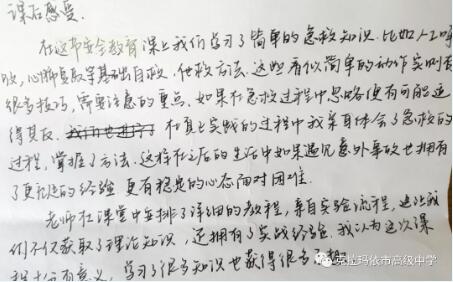 课后感受.
在这节安全教育课上我们学习了简单的急救知识.比如人工呼
吸,心肺复苏等基础自救、他救方法.这些看似简单的动作实则有
很多技巧,需要注意的重点.如果在急救过程中忽略便有可能适
得其反.在真正实践的过程中我亲身体会了急救的
过程,掌握了方法.这样在之后的生活中如果遇见意外事故也拥有
了更充足的经验 更有稳定的心态面对困难.
老师在课堂中安排了详细的教程,亲自实验流程,这让我
们不仅获取了理论知识,还拥有了实战经验.我认为这次课
程十分有意义,学习了很多知识也获得很多
克拉玛依市高级中学